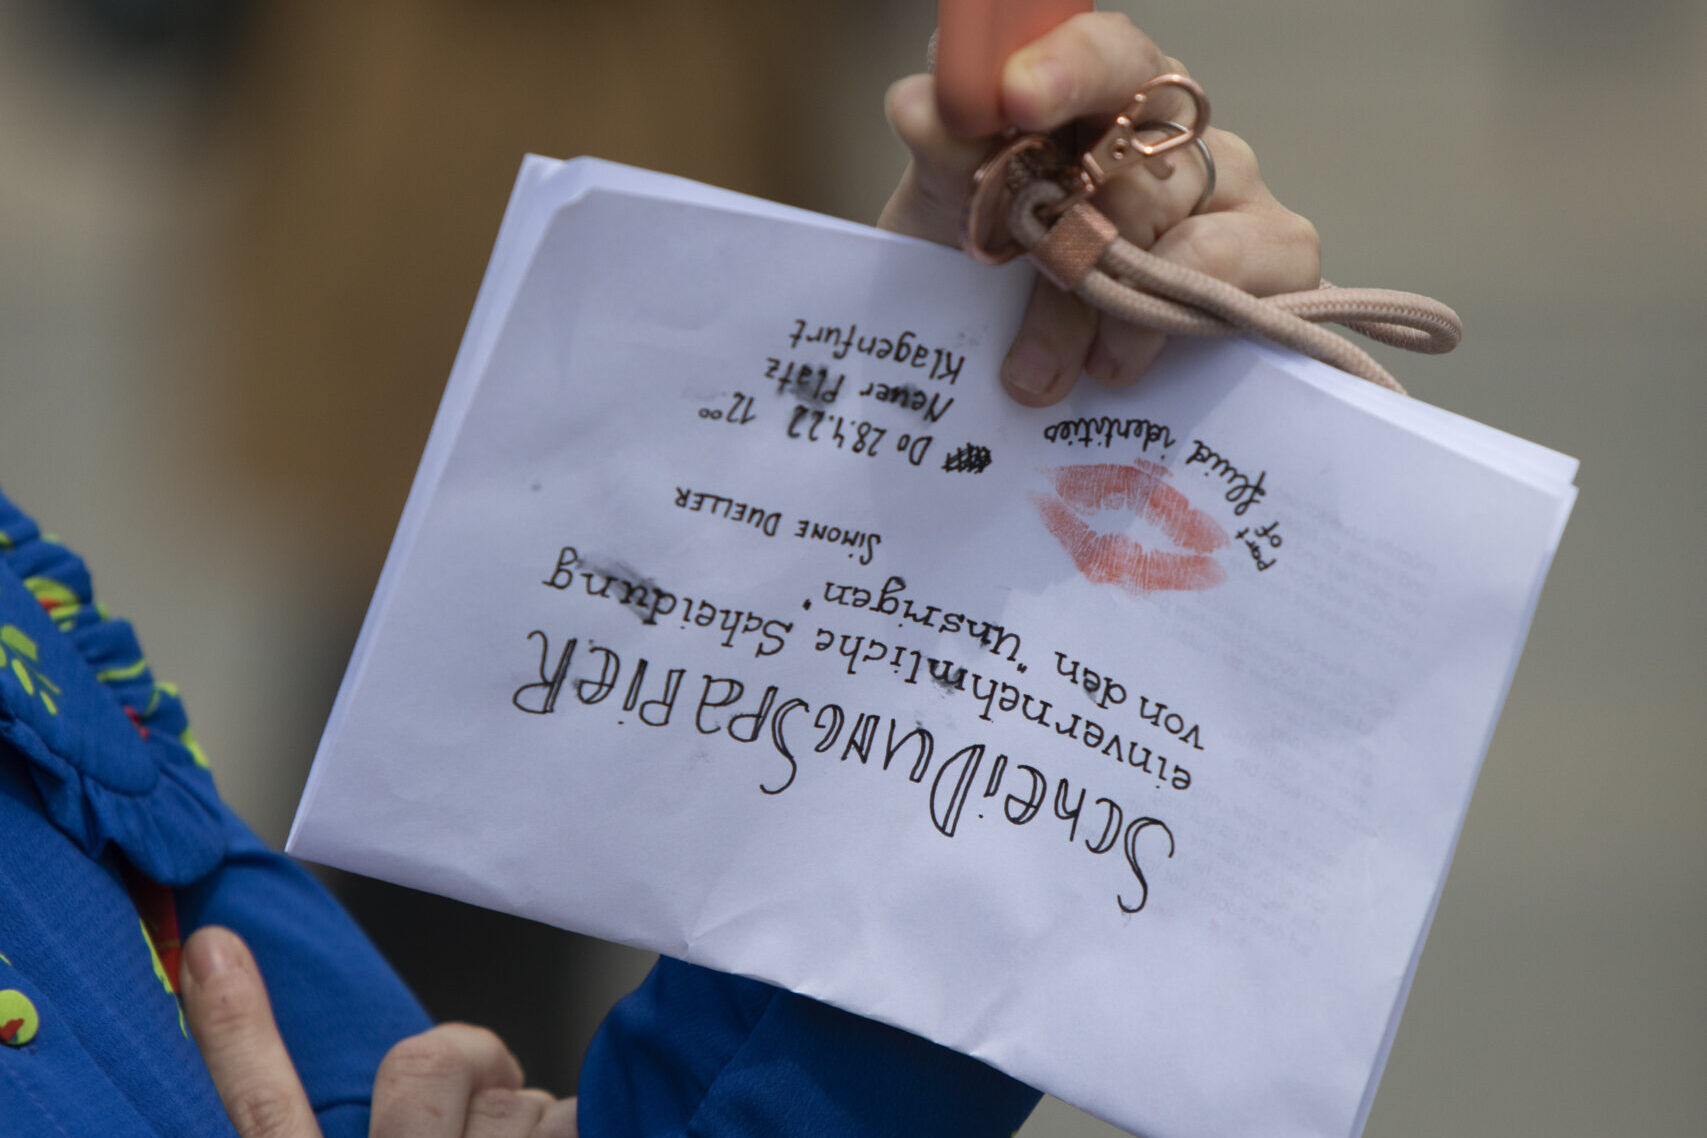 ScheiDUNGSPaPieR
einvernehmliche Scheidung
von den "Unsrigen"
SIMONE DUELLER
Do 28.4.22 12⁰⁰
Neuer Platz
Klagenfurt
part of fluid identities